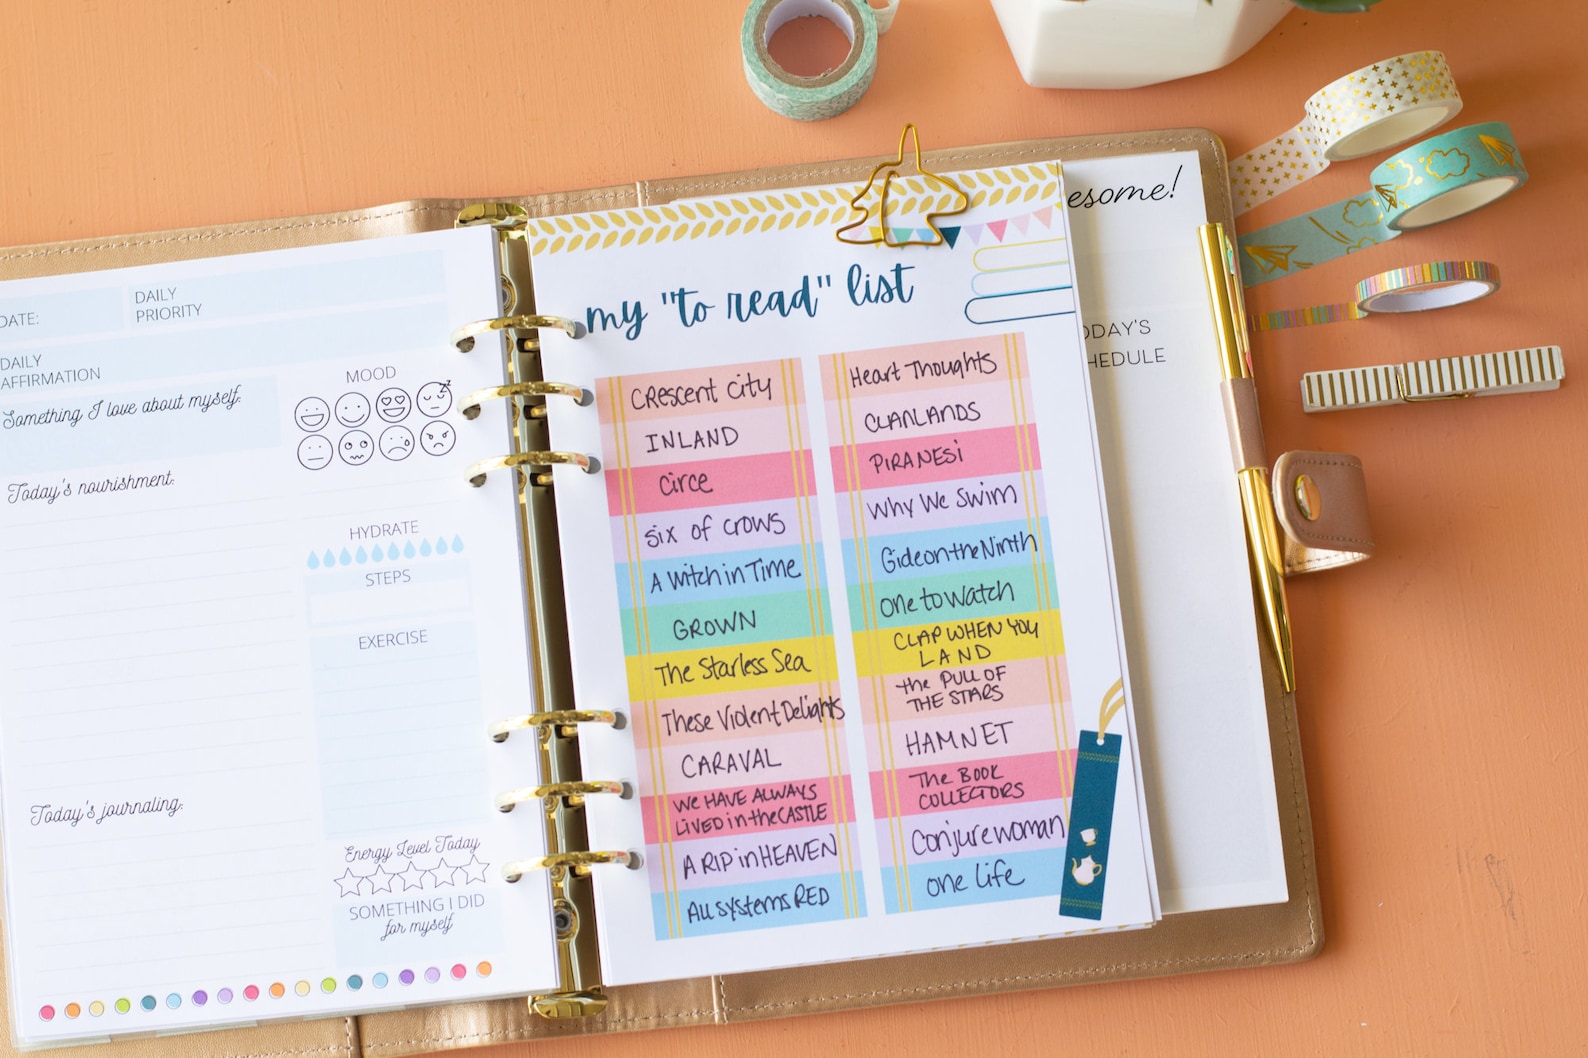 DATE:
DAILY
PRIORITY
DAILY
AFFIRMATION
Something I love about myself:
MOOD
Today's nourishment:
HYDRATE
STEPS
EXERCISE
Today's journaling:
Energy Level Today
SOMETHING I DID
for myself
my "to read" list
CRescent City
INLAND
Circe
Six of Crows
A Witch in Time
GROWN
The Starless Sea
These Violent Delights
CARAVAL
WE HAVE ALWAYS
LIVED in the CASTLE
A RIP in HEAVEN
All Systems RED
Heart Thoughts
CLANLANDS
PIRANESi
Why We Swim
Gideon the Ninth
One to Watch
CLAP WHEN YOU
LAND
the PULL OF
THE STARS
HAMNET
The BOOK
COLLECTORS
Conjure woman
One Life
esome!
ODAY'S
HEDULE